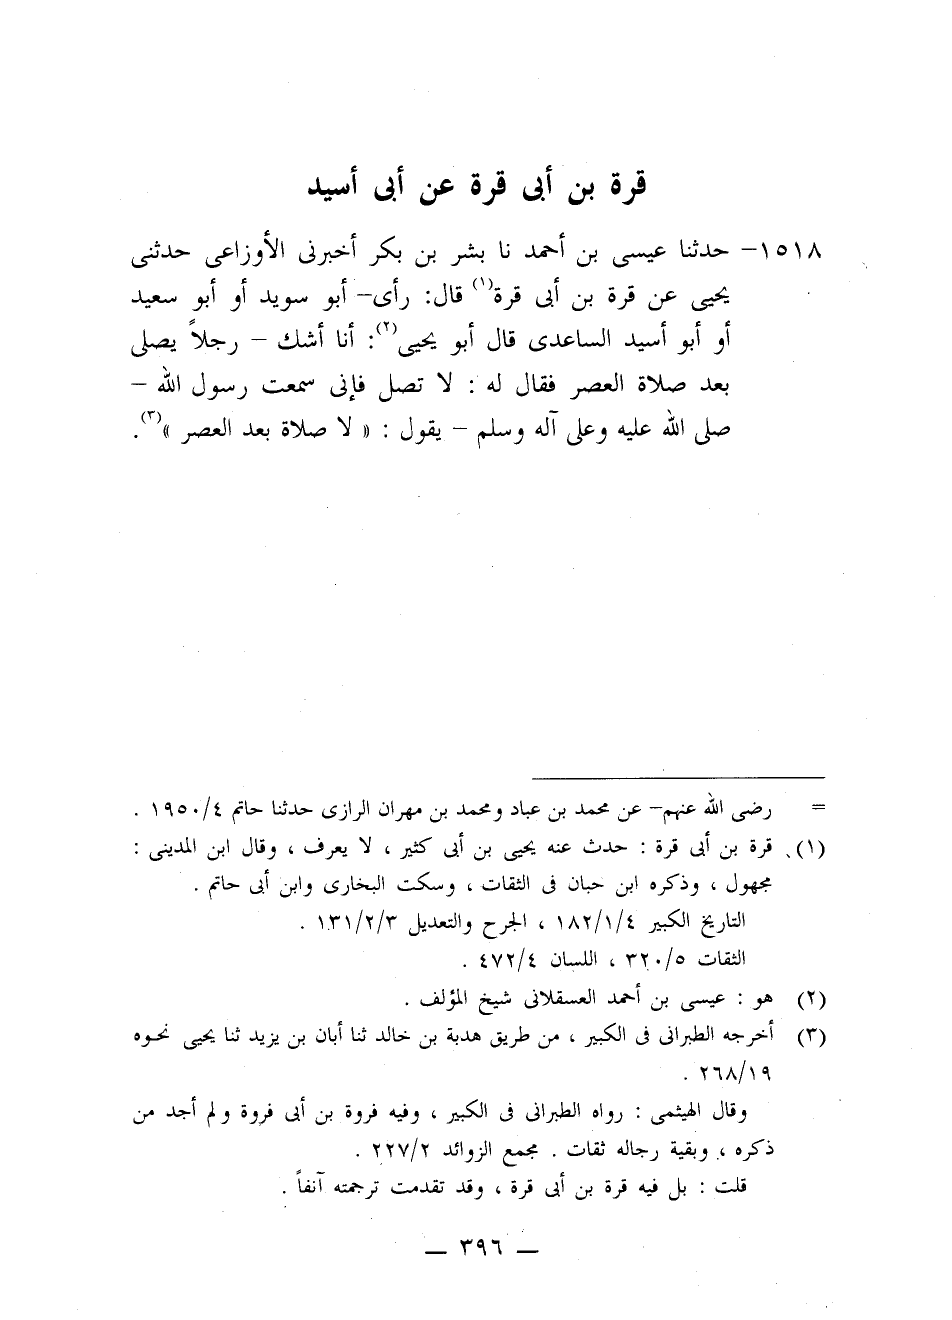 قرة بن أبى قرة عن أبى أسيد
١٥١٨– حدثنا عيسى بن أحمد نا بشر بن بكر أخبرنى الأوزاعى حدثنى
يحيى عن قرة بن أبى قرة(١) قال: رأى– أبو سويد أو أبو سعيد
أو أبو أسيد الساعدى قال أبو يحيى(٢): أنا أشك – رجلاً يصلى
بعد صلاة العصر فقال له : لا تصل فإنى سمعت رسول الله –
صلى الله عليه وعلى آله وسلم – يقول : « لا صلاة بعد العصر »(٣).
= رضى الله عنهم– عن محمد بن عباد ومحمد بن مهران الرازى حدثنا حاتم ١٩٥٠/٤ .
(١) قرة بن أبى قرة : حدث عنه يحيى بن أبى كثير ، لا يعرف ، وقال ابن المدينى :
مجهول ، وذكره ابن حبان فى الثقات ، وسكت البخارى وابن أبى حاتم .
التاريخ الكبير ١٨٢/١/٤ ، الجرح والتعديل ١٣١/٢/٣ .
الثقات ٣٢٠/٥ ، اللسان ٤٧٢/٤ .
(٢) هو : عيسى بن أحمد العسقلانى شيخ المؤلف .
(٣) أخرجه الطبرانى فى الكبير ، من طريق هدبة بن خالد ثنا أبان بن يزيد ثنا يحيى نحوه
٢٦٨/١٩ .
وقال الهيثمى : رواه الطبرانى فى الكبير ، وفيه فروة بن أبى فروة ولم أجد من
ذكره ، وبقية رجاله ثقات . مجمع الزوائد ٢٢٧/٢ .
قلت : بل فيه قرة بن أبى قرة ، وقد تقدمت ترجمته آنفاً .
— ٣٩٦ —